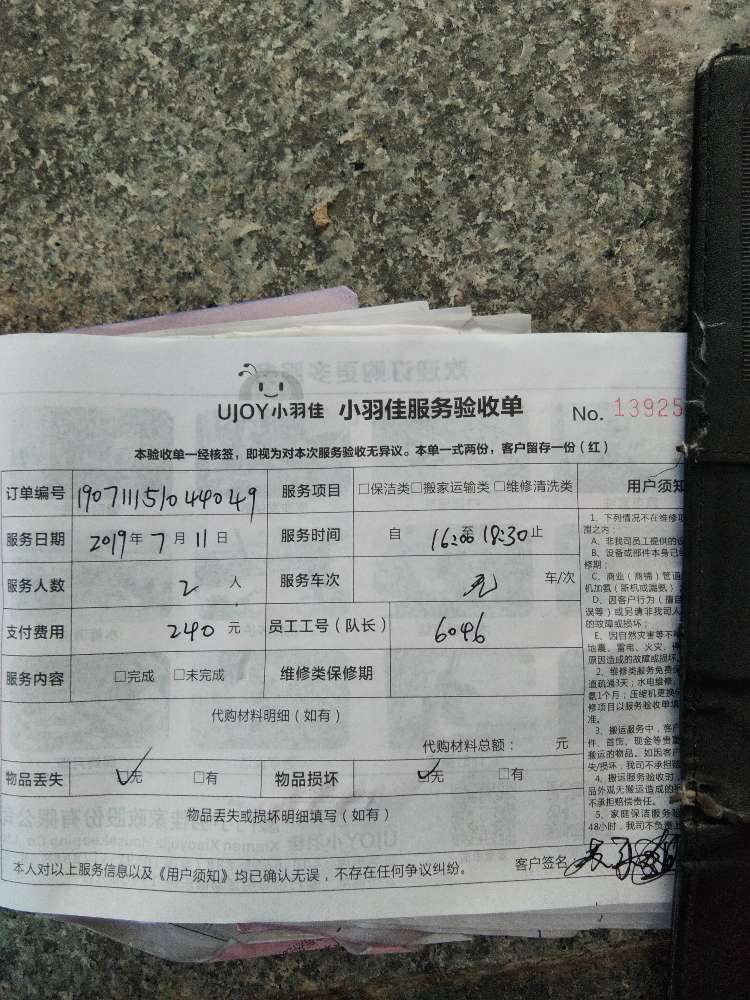 UJOY小羽佳 小羽佳服务验收单 No. 13925
本验收单一经核签，即视为对本次服务验收无异议。本单一式两份，客户留存一份（红）
订单编号 190711151044049 服务项目 □保洁类□搬家运输类□维修清洗类 用户须知
服务日期 2019年7月11日 服务时间 自 16:00至18:30止
服务人数 2人 服务车次 无 车/次
支付费用 240元 员工工号（队长） 6046
服务内容 □完成 □未完成 维修类保修期
代购材料明细（如有）
代购材料总额： 元
物品丢失 ☑无 □有 物品损坏 ☑无 □有
物品丢失或损坏明细填写（如有）
本人对以上服务信息以及《用户须知》均已确认无误，不存在任何争议纠纷。 客户签名
1、下列情况不在维修
围之内：
A、非我司员工提供的
B、设备或部件本身已
修期；
C、商业（商铺）管道
机加氨（新机或漏氨）
D、因客户行为（擅自
误等）或另请非我司人
的故障或损坏；
E、因自然灾害等不
地震、雷电、火灾、
原因造成的故障或损坏
2、维修类服务免费保
道疏通3天；水电维修
氨1个月；压缩机更换
修项目以服务验收单填
准。
3、搬运服务中，客户
件、首饰、现金等贵重
搬运的物品。如因客户
失/损坏，我司不承担
4、搬运服务验收时，
品外观无搬运造成的损
不承担赔偿责任。
5、家庭保洁服务验
48小时，我司不负责